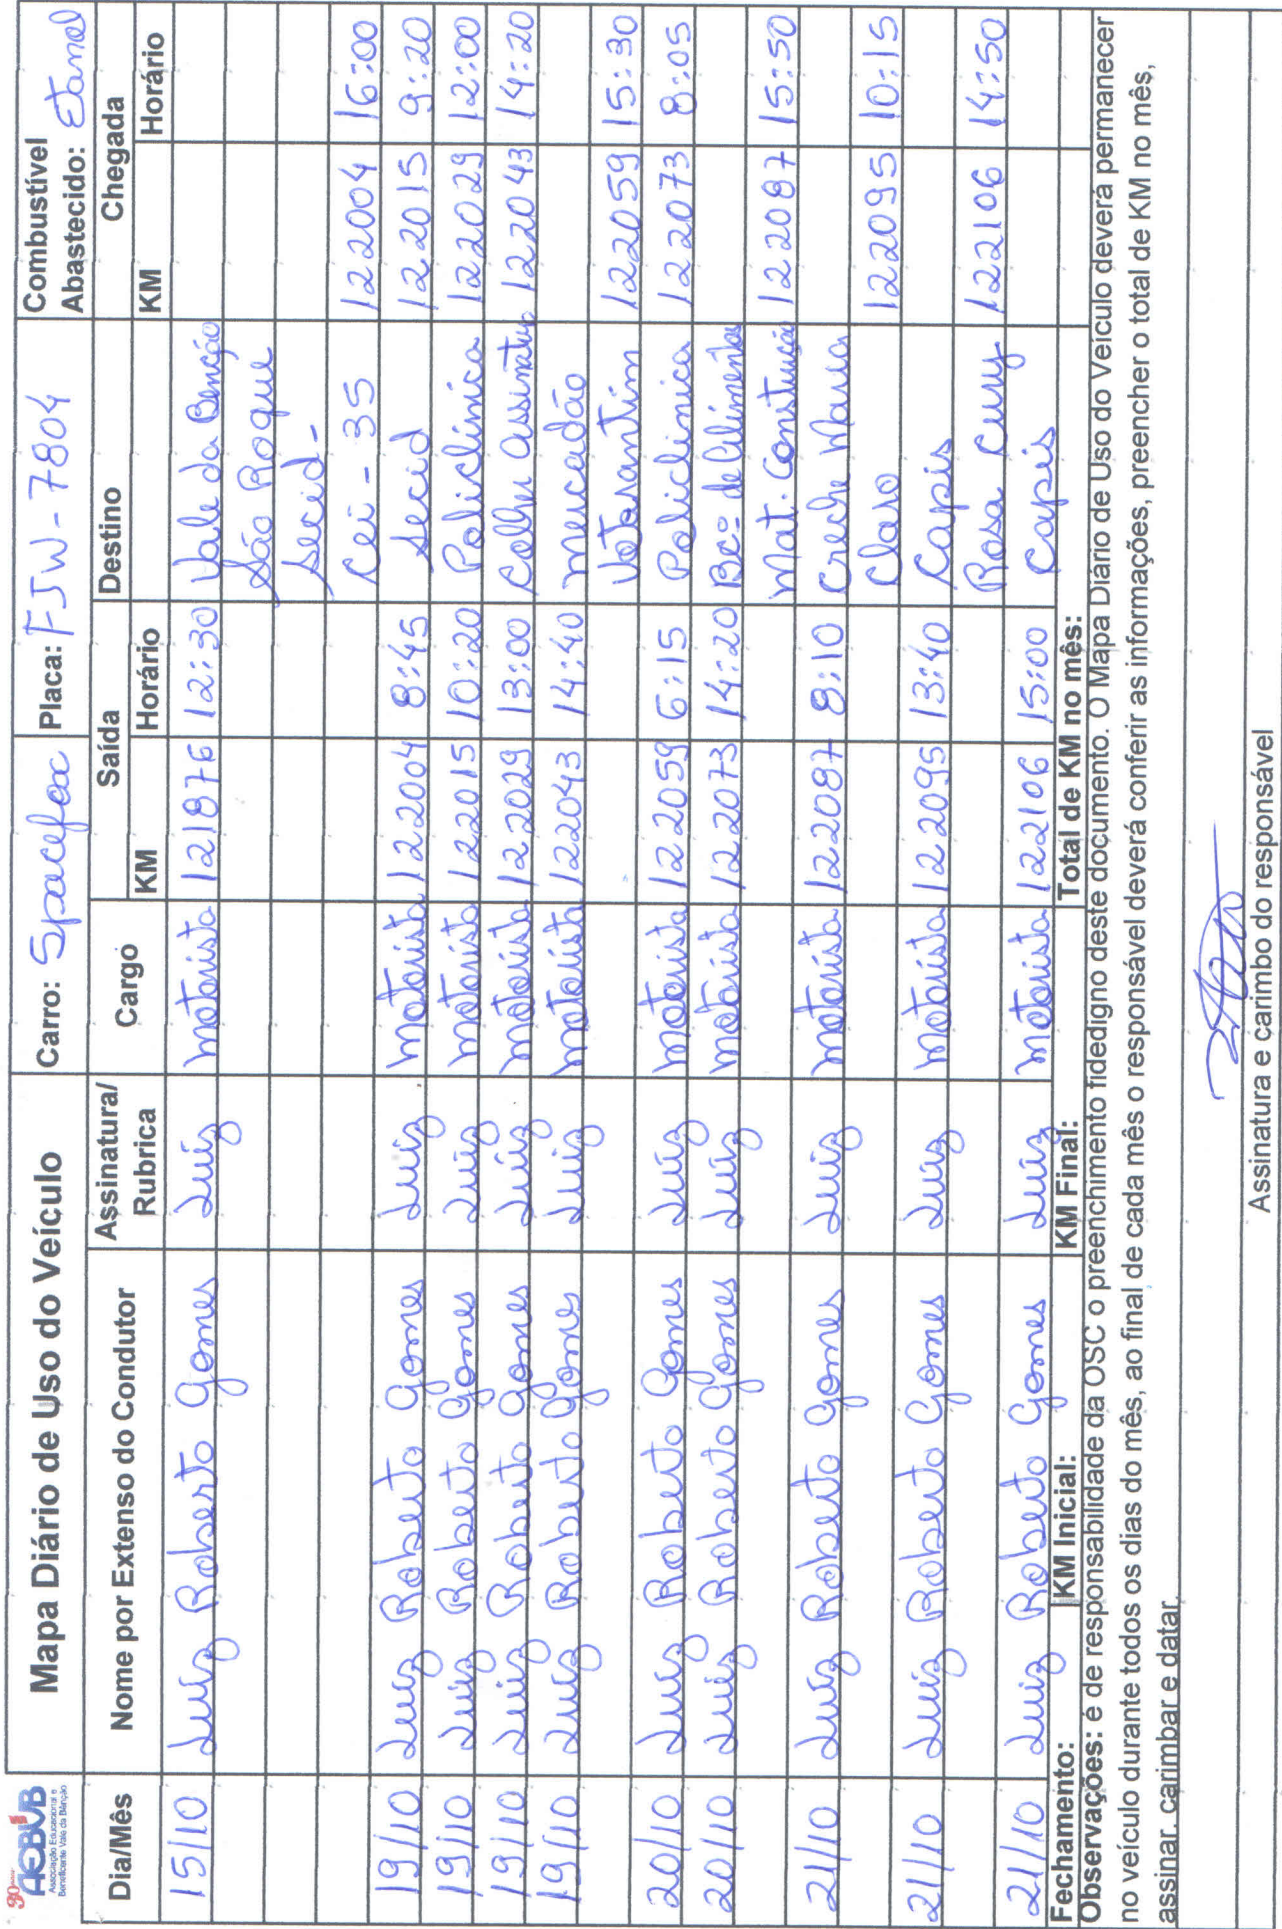 90 anos
AEBVB
Associação Educacional e
Beneficente Vale da Bênção
Mapa Diário de Uso do Veículo
Carro: Spacefox Placa: FJW-7804
Combustível
Abastecido: Etanol
Dia/Mês Nome por Extenso do Condutor Assinatura/
Rubrica Cargo Saída Destino Chegada
KM Horário KM Horário
15/10 Luiz Roberto Gomes Luiz motorista 121876 12:30 Vale da Benção
São Roque
Secid-
Cei-35 122004 16:00
19/10 Luiz Roberto Gomes Luiz motorista 122004 8:45 Secid 122015 9:20
19/10 Luiz Roberto Gomes Luiz motorista 122015 10:20 Policlínica 122029 12:00
19/10 Luiz Roberto Gomes Luiz motorista 122029 13:00 Colher assinatura 122043 14:20
19/10 Luiz Roberto Gomes Luiz motorista 122043 14:40 mercadão
Votorantim 122059 15:30
20/10 Luiz Roberto Gomes Luiz motorista 122059 6:15 Policlinica 122073 8:05
20/10 Luiz Roberto Gomes Luiz motorista 122073 14:20 Bcº de Alimentos
Mat. Construção 122087 15:50
21/10 Luiz Roberto Gomes Luiz motorista 122087 8:10 Creche Maria
Claro 122095 10:15
21/10 Luiz Roberto Gomes Luiz motorista 122095 13:40 Capis
Rosa Cury 122106 14:50
21/10 Luiz Roberto Gomes Luiz motorista 122106 15:00 Capis
Fechamento: KM Inicial: KM Final: Total de KM no mês:
Observações: é de responsabilidade da OSC o preenchimento fidedigno deste documento. O Mapa Diário de Uso do Veículo deverá permanecer
no veículo durante todos os dias do mês, ao final de cada mês o responsável deverá conferir as informações, preencher o total de KM no mês,
assinar, carimbar e datar.
Assinatura e carimbo do responsável